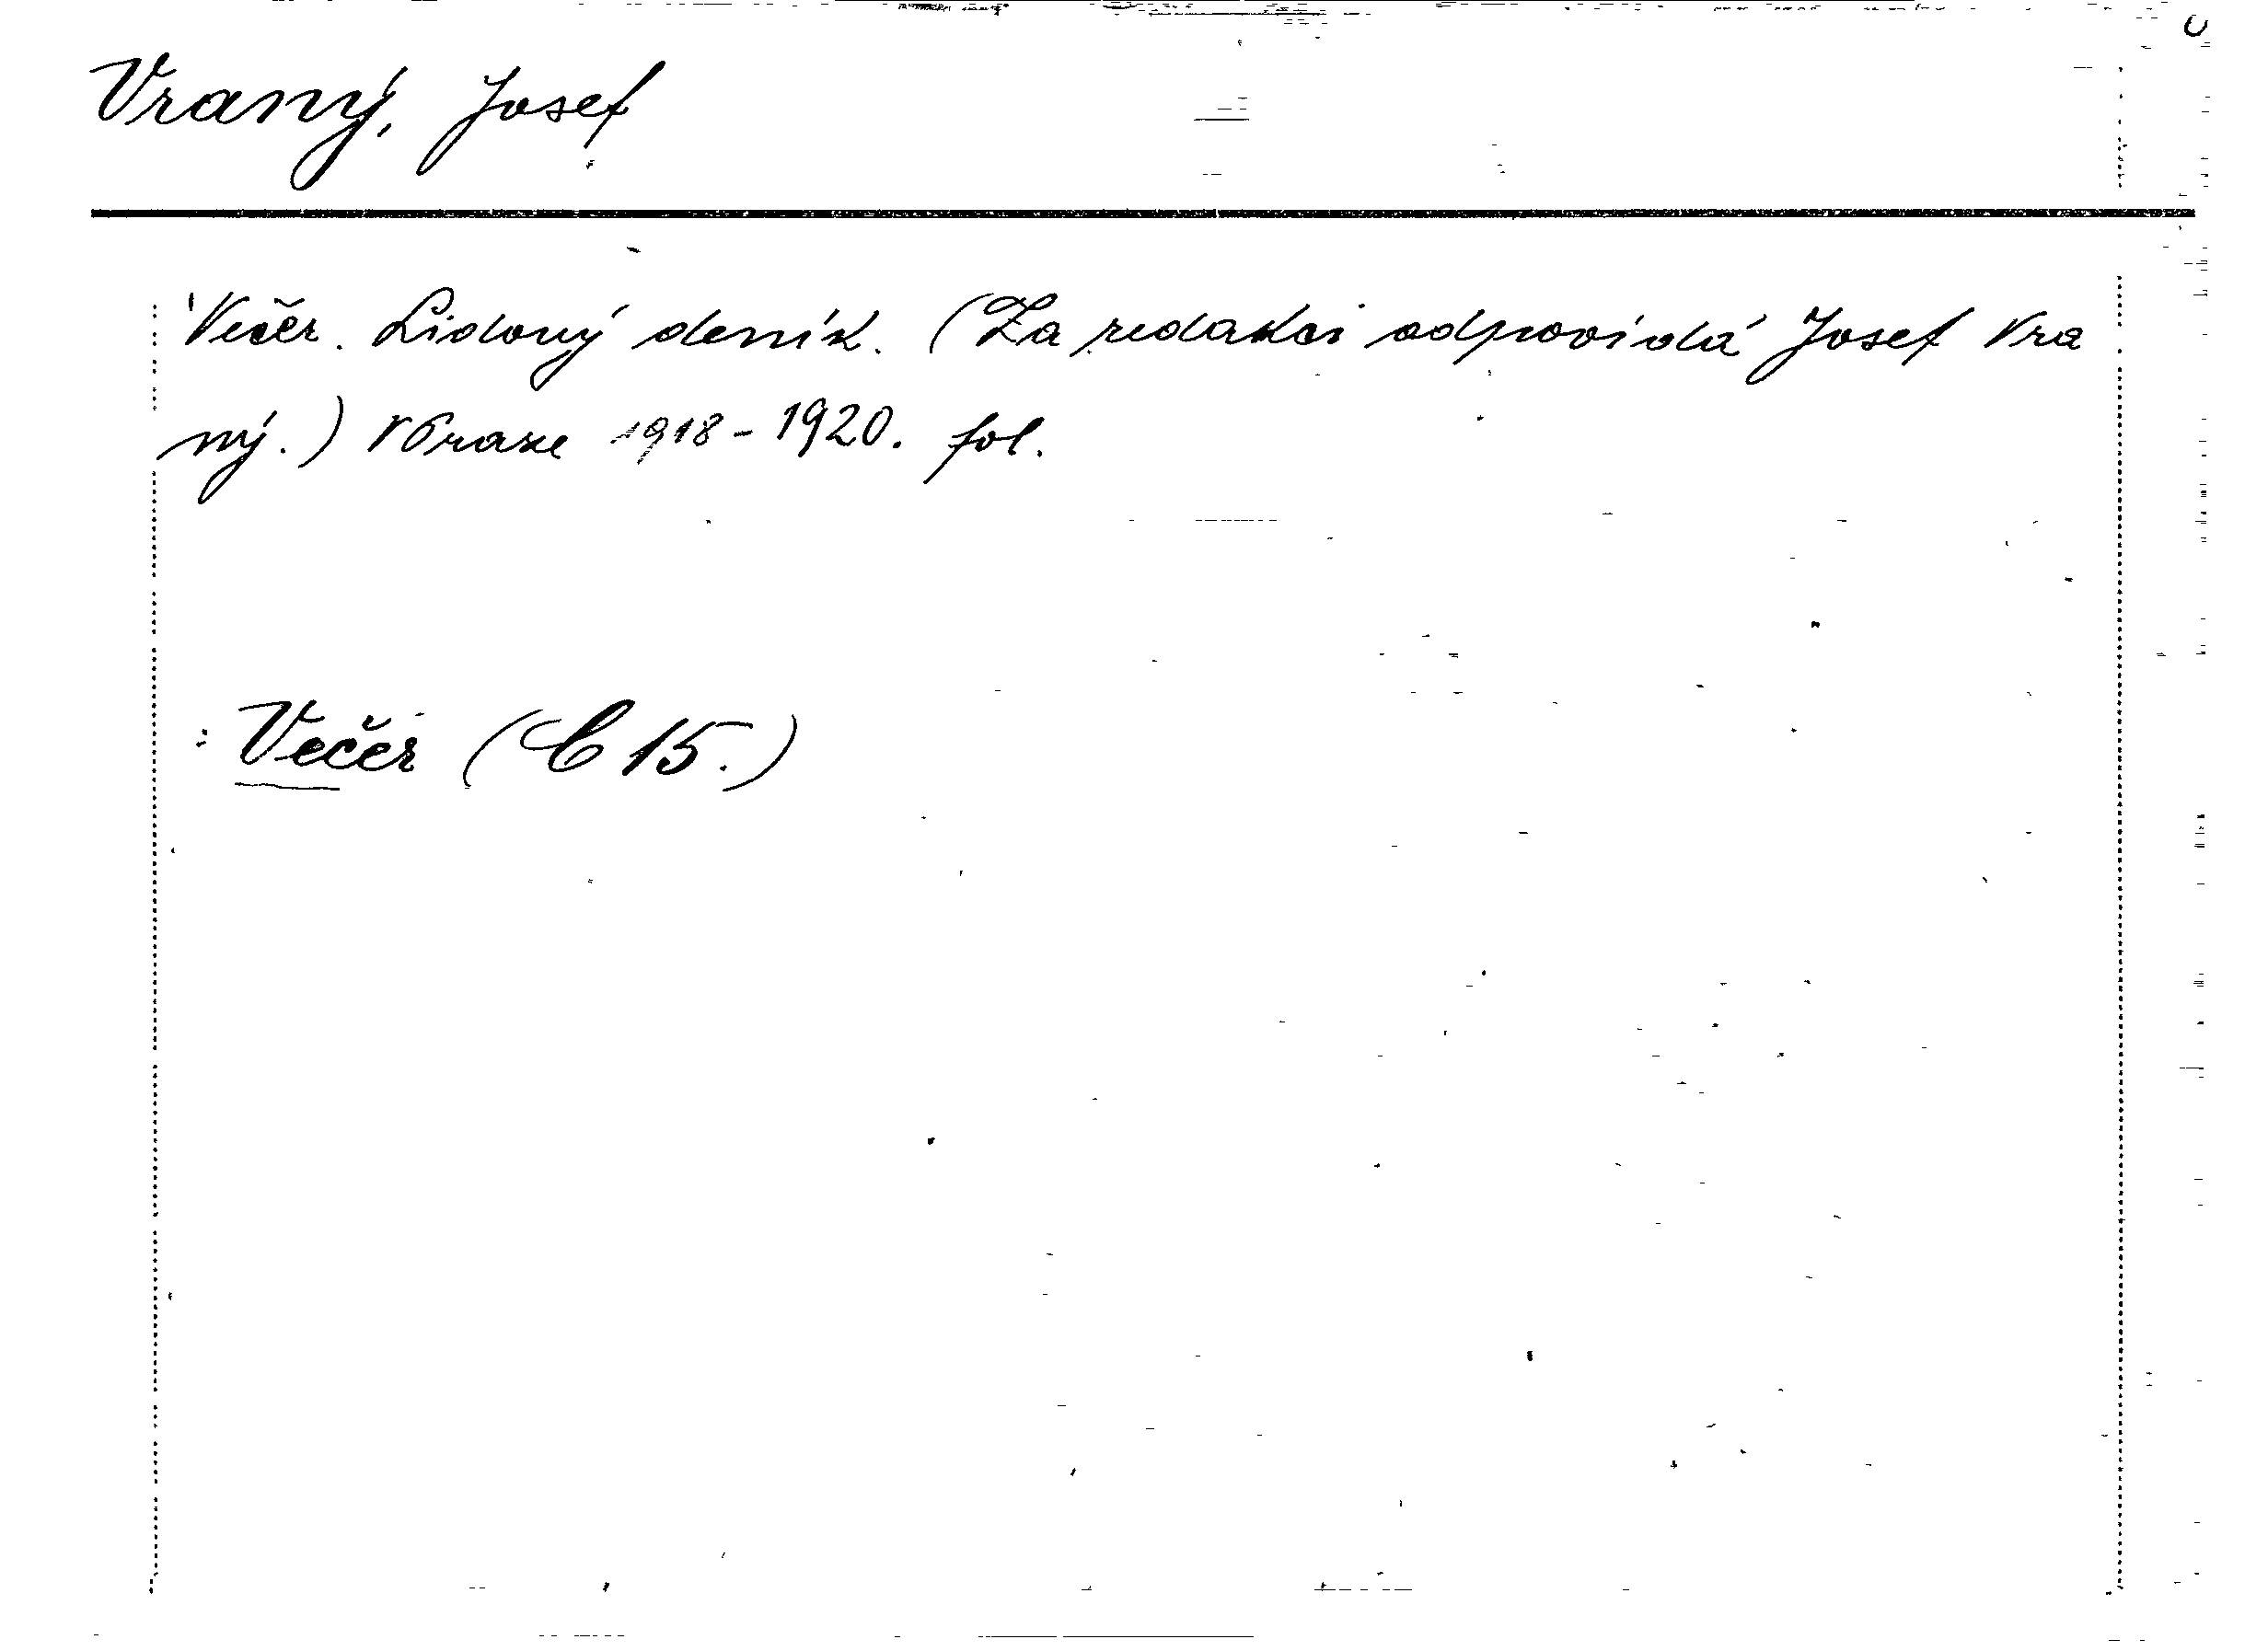 Vraný, Josef
Večer. Lidový deník. (Za redakci odpovídá Josef Vra
ný.) V Praze 1918-1920. fol.
: Večer (C 15.)